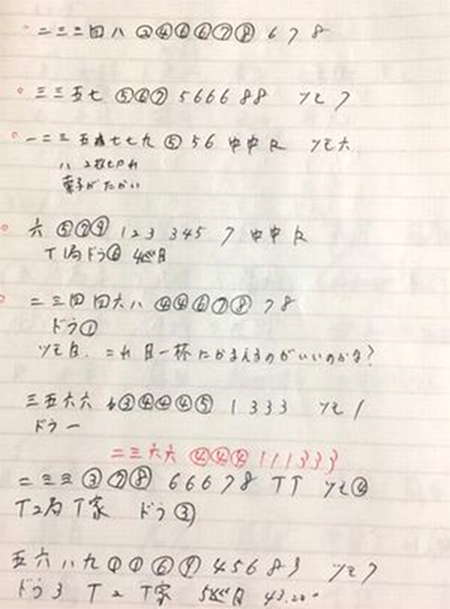 二三三四八 ②④⑤⑥⑦⑧ 6 7 8
三三五七 ⑤⑥⑦ 5 6 6 6 8 8 ツモ 7
一二三 五 七七九 ⑤ 5 6 中中 ツモ 六
八 2枚切れ
六 ⑤⑦⑨ 1 2 3 3 4 5 7 中中
T 1局 ドラ 4巡目
二三四四六八 ④④⑥⑦⑧ 7 8
ドラ①
ツモ 目一杯にかまえるのがいいのかな?
三五六六 ③④④④⑤ 1 3 3 3 ツモ 1
ドラ 一
二三六六 ④④④ 1 1 1 3 3 3
二三三 ③⑦⑧ 6 6 6 7 8 T T ツモ
T2局 T家 ドラ③
五六八九 ①①⑥⑨ 4 5 6 8 ツモ 7
ドラ 3 T 2 T家 5巡目